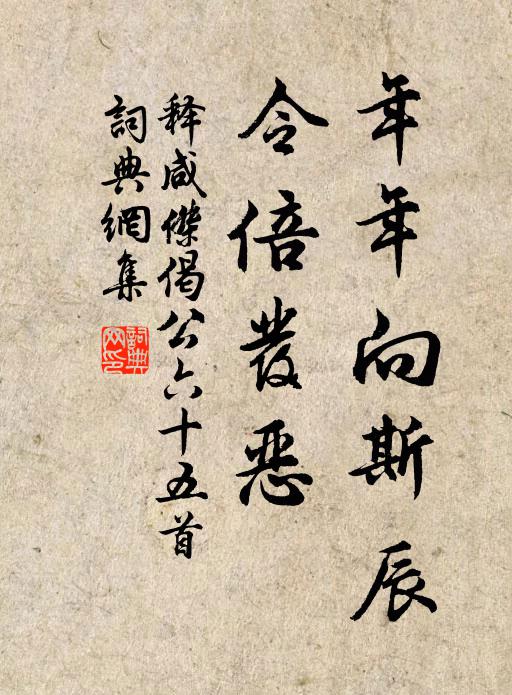 年年向斯辰
令倍發惡
释咸傑偈公六十五首
詞典網集
詞典网印